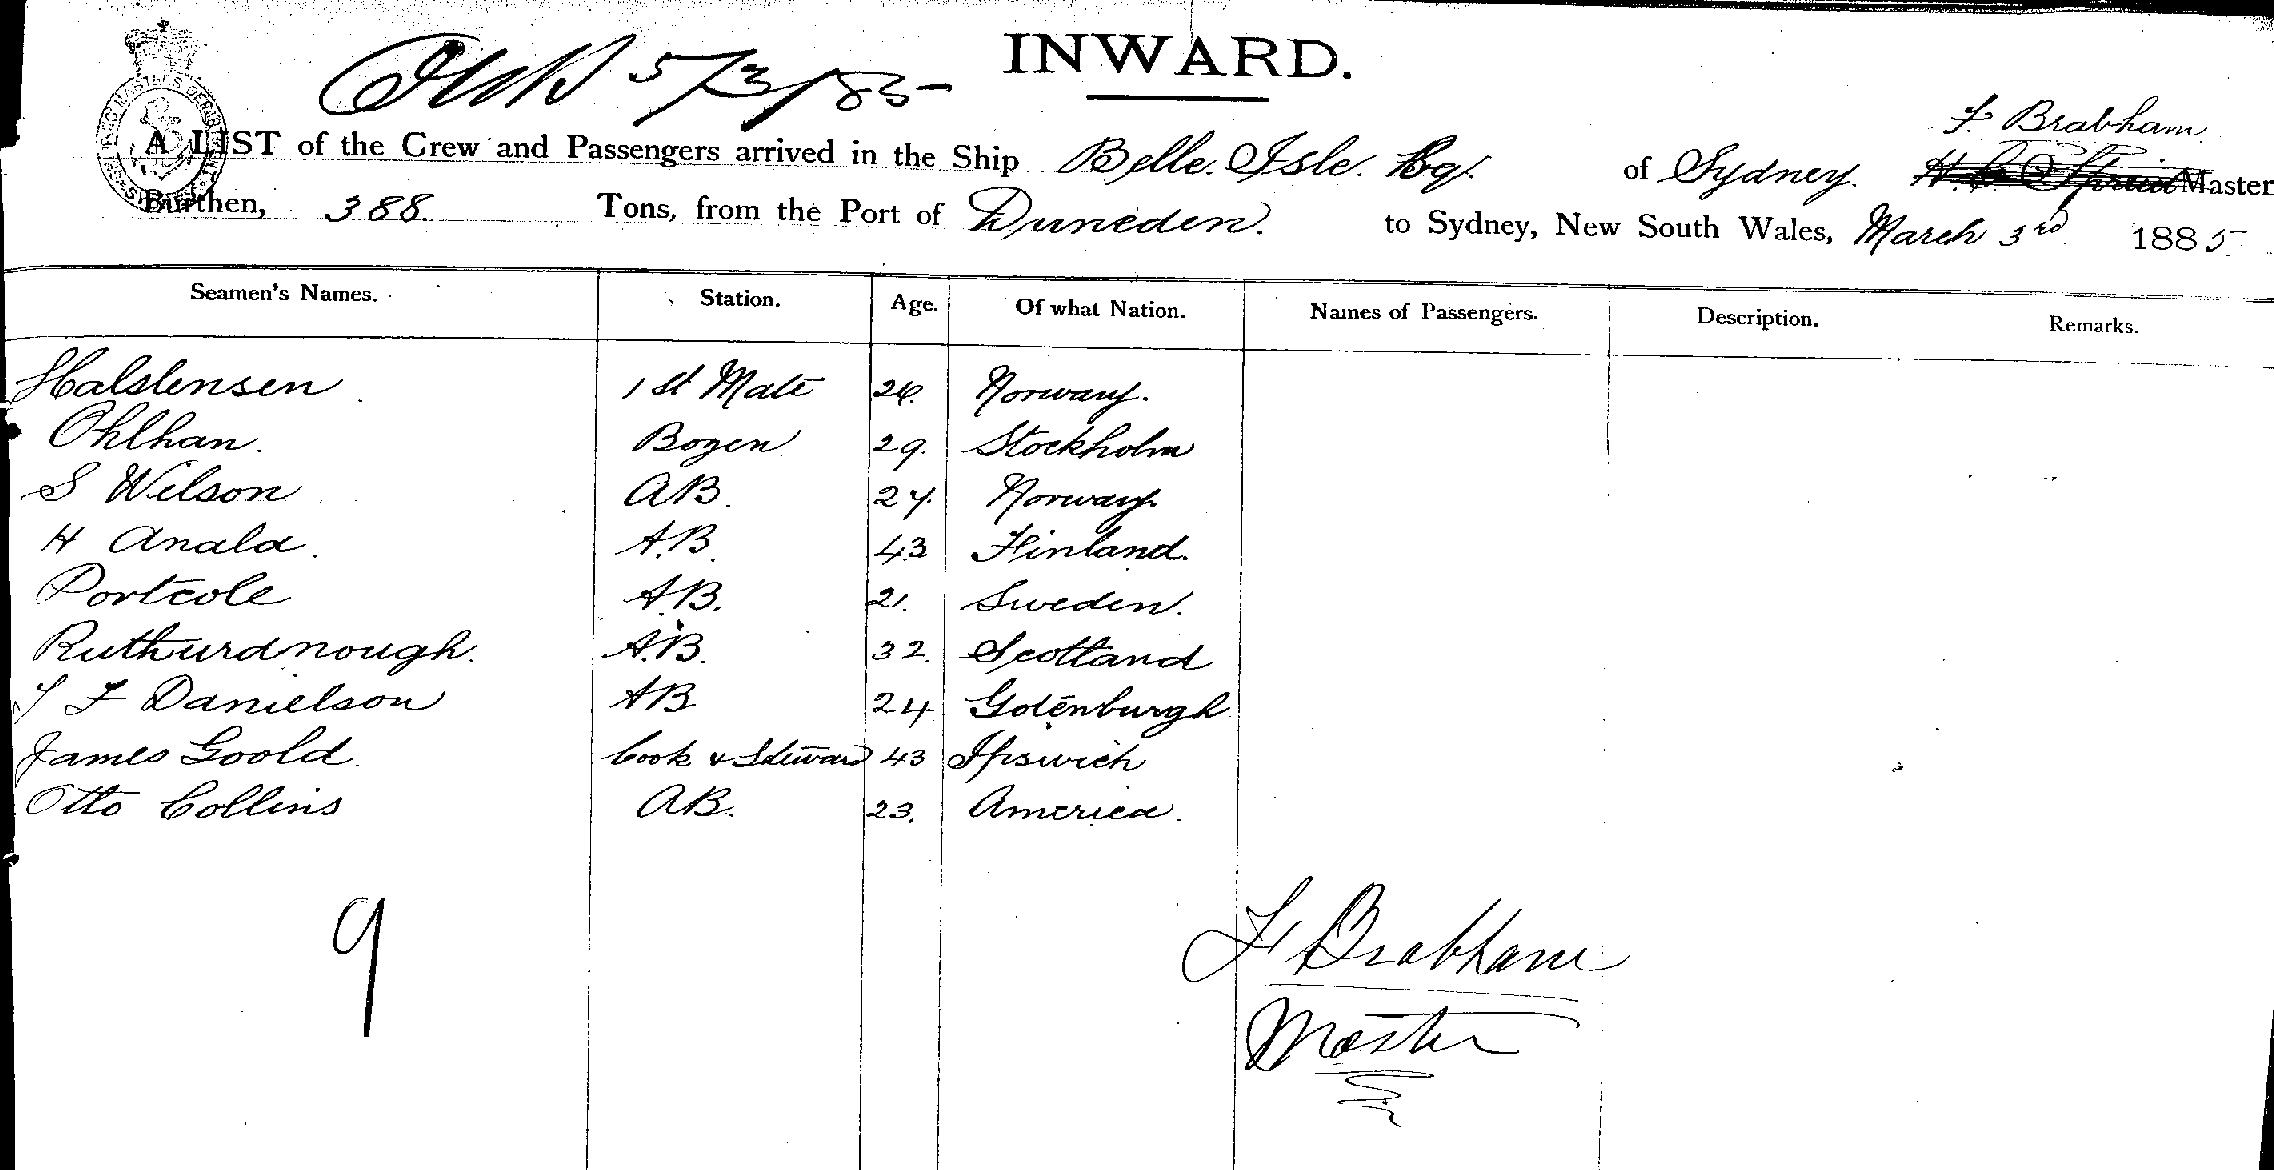 INWARD.
5/3/85
F. Brabham
A LIST of the Crew and Passengers arrived in the Ship Belle Isle Bq. of Sydney Master
Burthen, 388 Tons, from the Port of Duneden. to Sydney, New South Wales, March 3rd 1885
Seamen's Names. Station. Age. Of what Nation. Names of Passengers. Description. Remarks.
Halstensen 1st Mate 26. Norway.
Ohlhan. Bozen 29. Stockholm
S Wilson AB. 27. Norway.
H Anald. A.B. 43 Finland.
Portcole A.B. 21. Sweden.
Ruthurdnough. A.B. 32. Scotland
J F Danielson AB 24 Gotenburgh
James Goold Cook & Steward 43 Ipswich
Otto Collins AB. 23. America.
9
F Brabham
Master